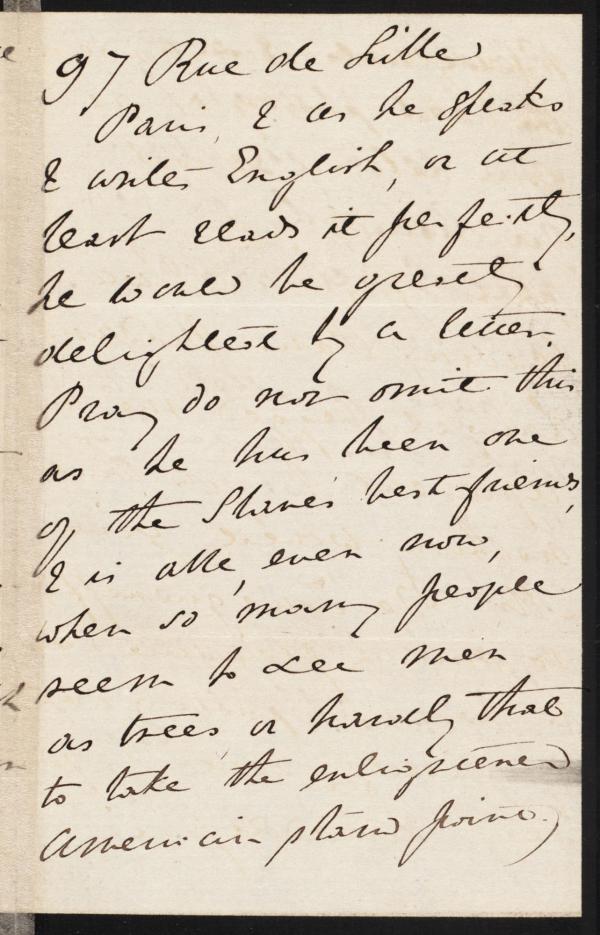 97 Rue de Lille
Paris, & as he speaks
& writes English, or at
least reads it perfectly,
he would be greatly
delighted by a letter.
Pray do not omit this
as he has been one
of the Slave's best friends,
& is able, even now,
when so many people
seem to see men
as trees, or hardly that
to take the enlightened
American stand point.)